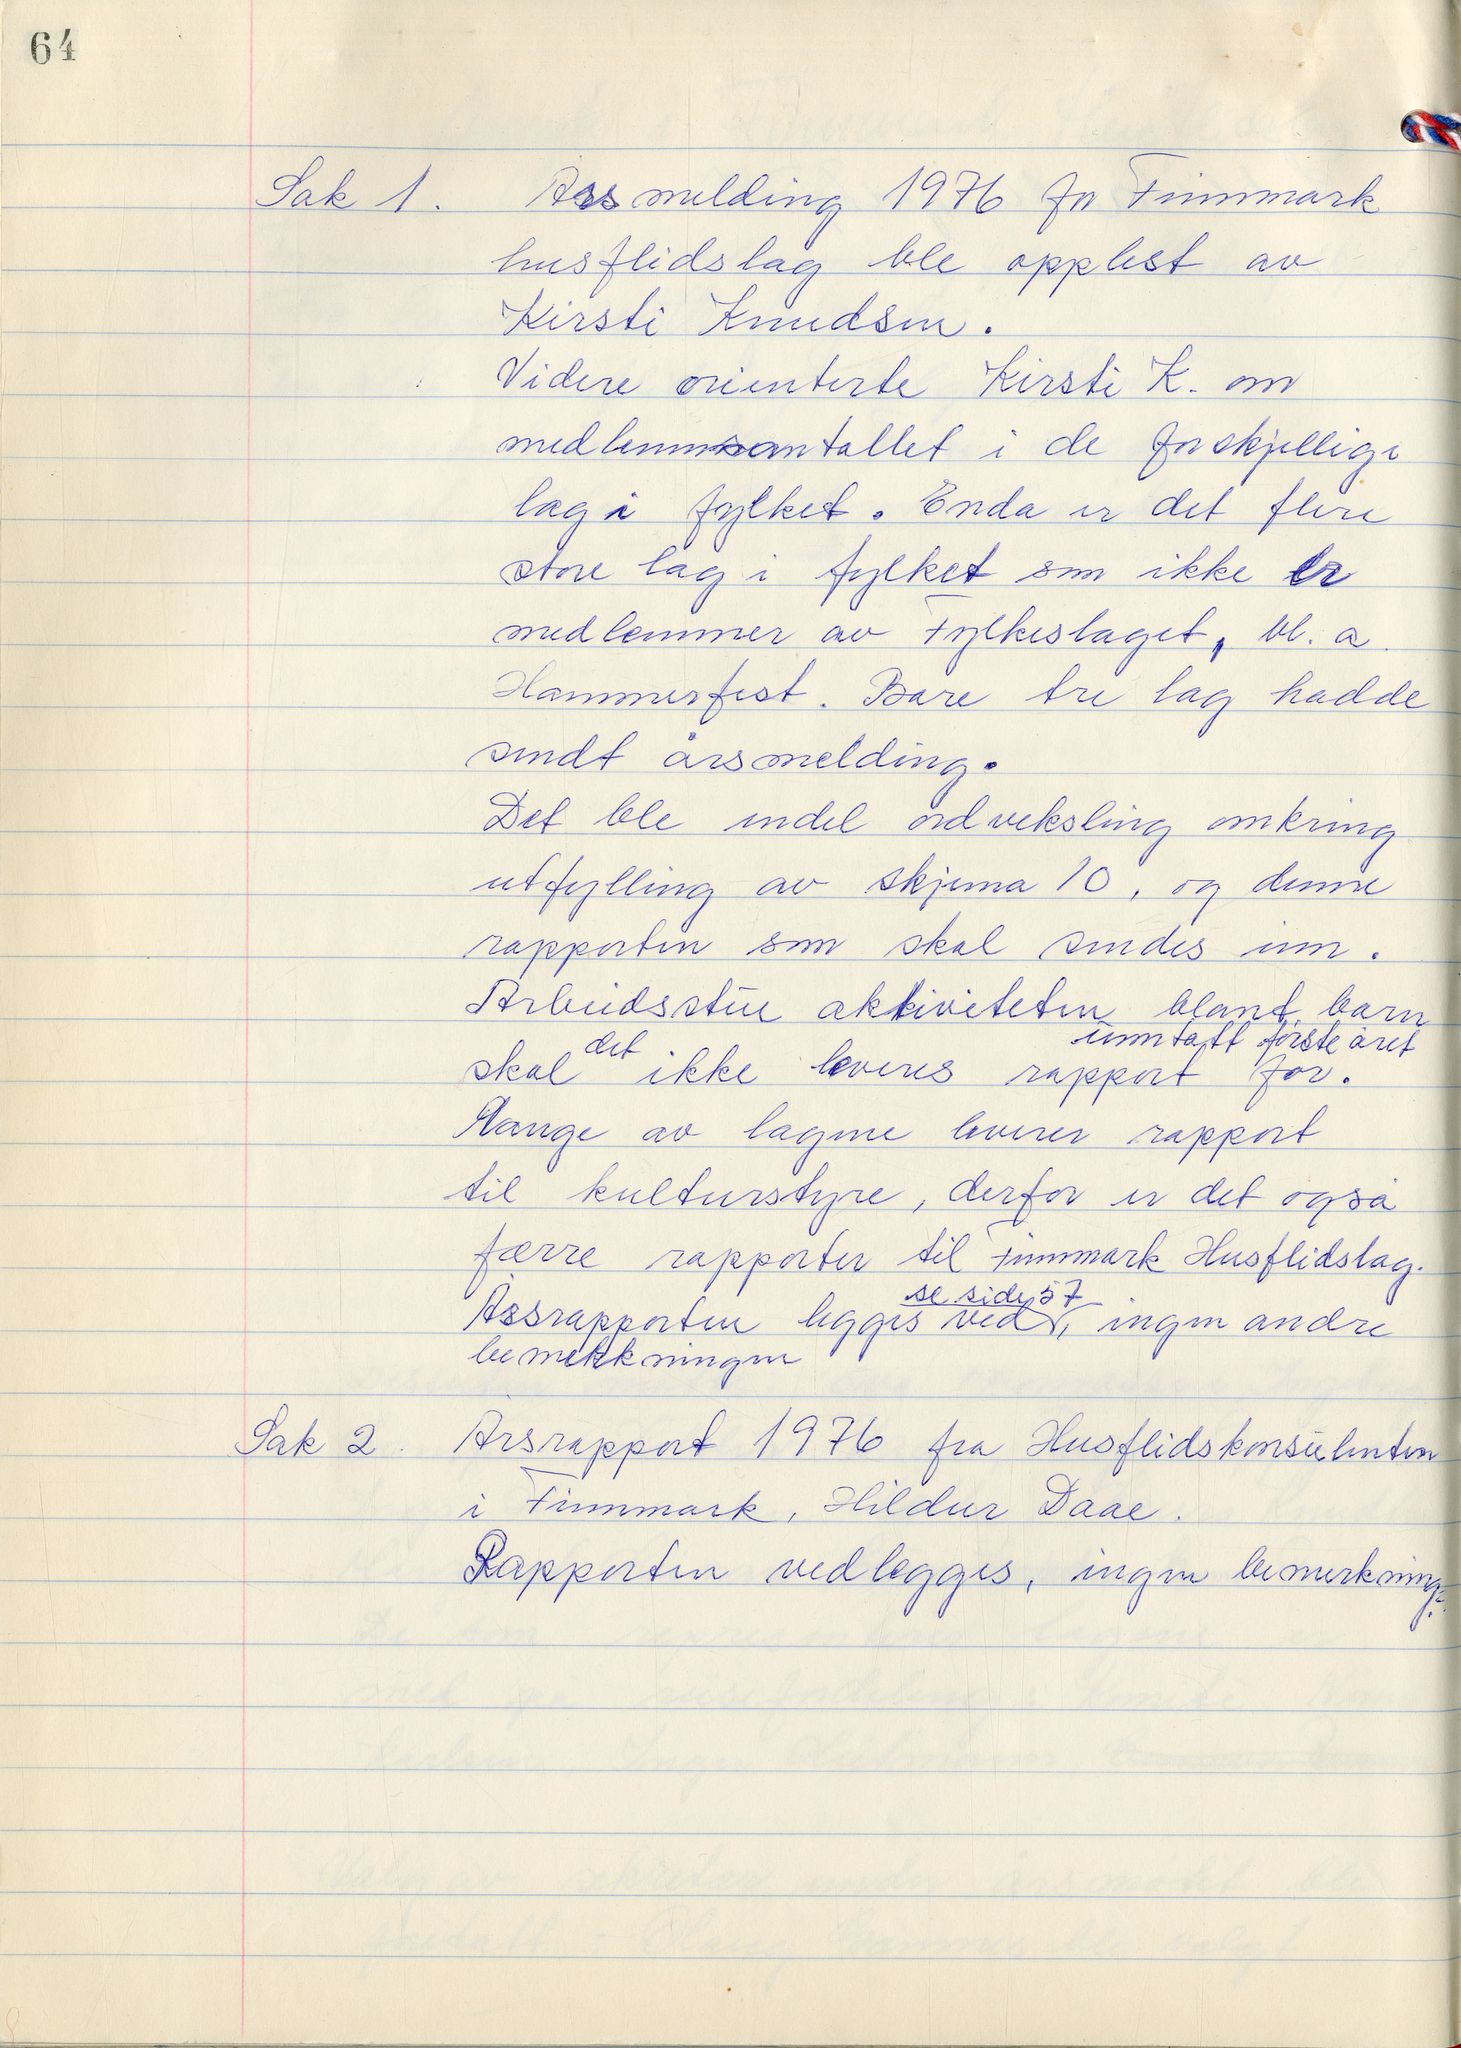 64
Sak 1. Årsmelding 1976 for Finnmark
husflidslag ble opplest av
Kirsti Knudsen.
Videre orienterte Kirsti K. om
medlemsantallet i de forskjellige
lag i fylket. Enda er det flere
store lag i fylket som ikke er
medlemmer av Fylkeslaget, bl. a.
Hammerfest. Bare tre lag hadde
sendt årsmelding.
Det ble endel ordveksling omkring
utfylling av skjema 10, og denne
rapporten som skal sendes inn.
Arbeidsstue aktiviteten blant barn
unntatt første året
skal det ikke leveres rapport for.
Mange av lagene leverer rapport
til kulturstyre, derfor er det også
færre rapporter til Finnmark Husflidslag.
se side 57
Årsrapporten legges ved, ingen andre
bemerkninger
Sak 2. Årsrapport 1976 fra Husflidskonsulenten
i Finnmark, Hildur Daae.
Rapporten vedlegges, ingen bemerkning.